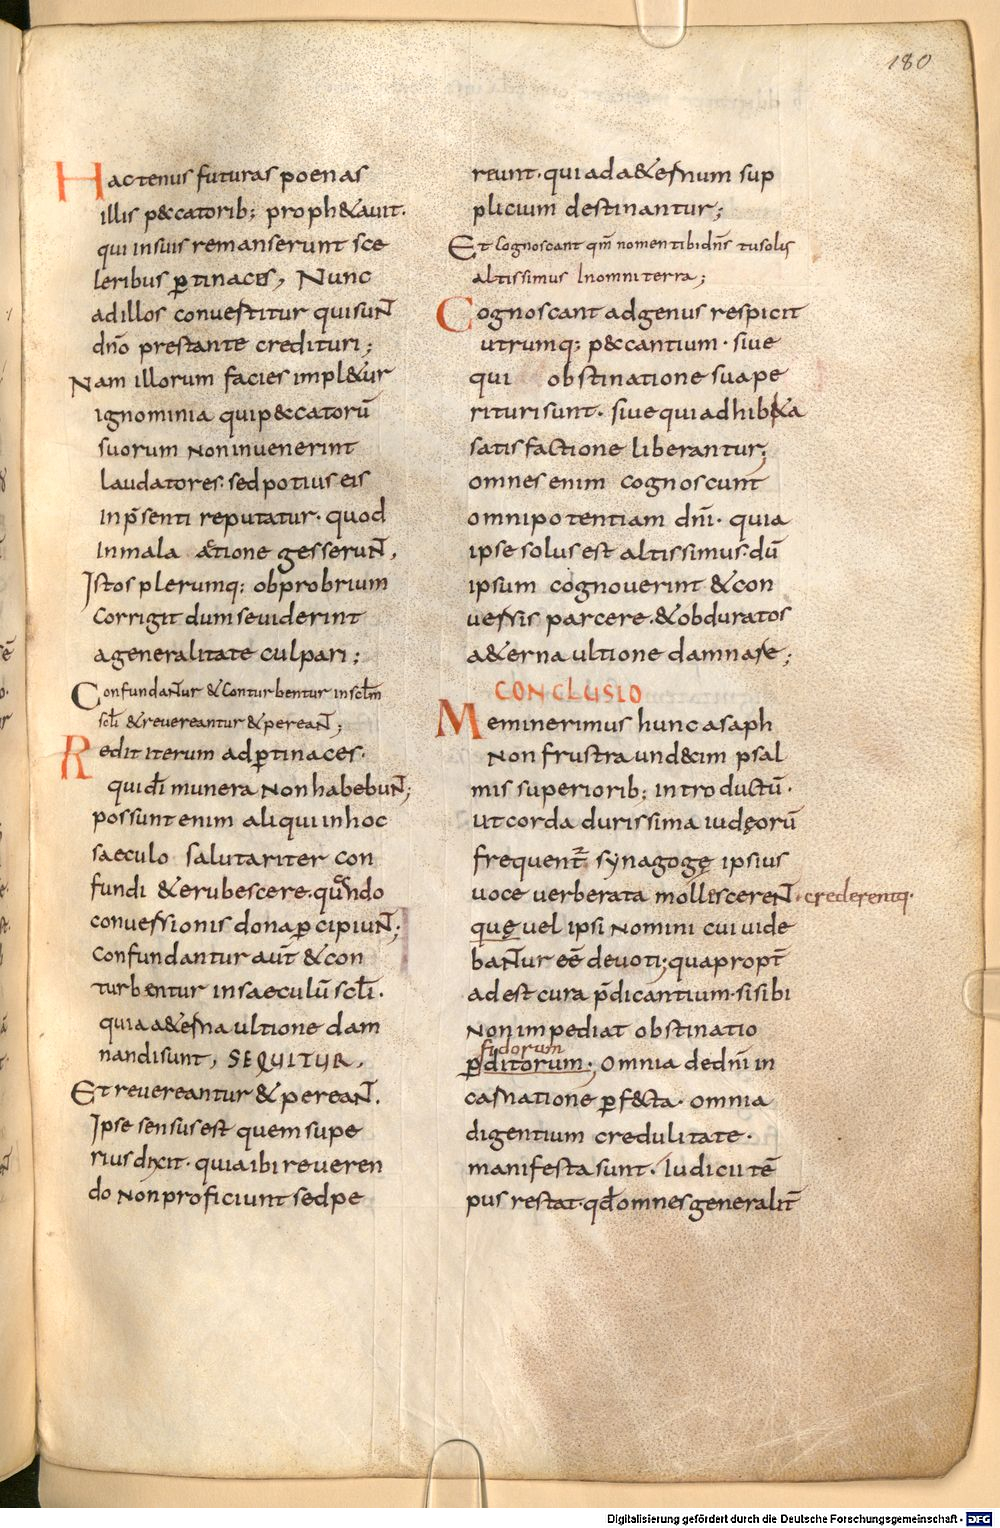 180
Hactenus futuras poenas
illis p&catorib; proph&auit.
qui insuis remanserunt sce
leribus ꝑtinaces, Nunc
adillos conuertitur quisunt
dño prestante credituri;
Nam illorum facies impl&ur
ignominia quip&ccatorū
suorum noninuenerint
laudatores. sedpotius eis
inp̄senti reputatur. quod
inmala actione gesserunt,
Istos plerumq; obprobrium
corrigit dumseuiderint
ageneralitate culpari;
Confundantur & conturbentur insc̄lm
sc̄li &reuereantur & pereant;
Redit iterum adꝑtinaces.
quidī munera nonhabebunt;
possuntenim aliquiinhoc
saeculo salutariter con
fundi &erubescere. quando
conuersionis donaꝑcipiunt;
confundantur aut̄ & con
turbentur insaeculū sc̄li.
quia a&erna ultione dam
nandisunt, SEQUITUR,
Et reuereantur & pereant.
Ipse sensusest quemsupe
rius dixit. quiaibi reueren
do nonproficiunt sedpe
reunt. qui ada&ernum sup
plicium destinantur;
Et cognoscant qm̄ nomentibidn̄s tusolus
altissimus Inomniterra;
Cognoscant adgenus respicit
utrumq; p&ccantium. siue
qui obstinatione suape
riturisunt. siuequiadhib&a
satisfactione liberantur;
omnes enim cognoscunt
omnipotentiam dn̄i. quia
ipse solusest altissimus. dū
ipsum cognouerint & con
uersis parcere. &obduratos
a&erna ultione damnare;
CONCLUSIO
Meminerimus hunc asaph
non frustra und&im psal
mis superiorib; introductū.
ut corda durissima iudęorū
frequent̄ synagogę ipsius
uoce uerberata molliscerent. crederentq.
quę uel ipsi nomini cui uide
bantur eē deuoti; quapropt̄
adest cura p̄dicantium. sisibi
non impediat obstinatio
fidorum
ꝑditorum; Omnia dedn̄i in
carnatione ꝑf&ta. omnia
digentium credulitate.
manifesta sunt. Iudicii tē
pus restat. qd̄ omnes generalit̄
Digitalisierung gefördert durch die Deutsche Forschungsgemeinschaft - DFG